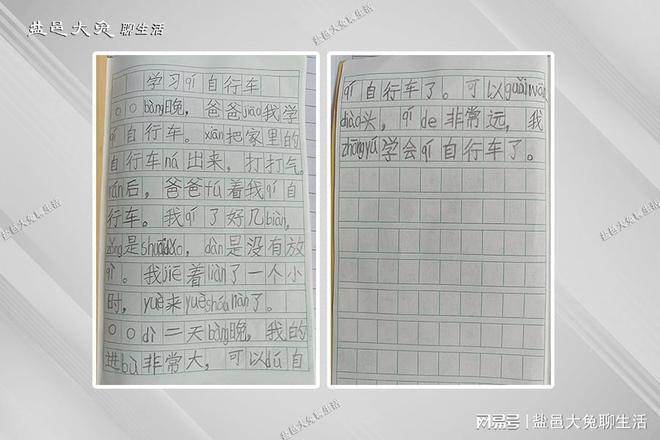 盐邑大兔聊生活
学习qí自行车
○○bàng晚，爸爸jiāo我学
qí自行车。xiān把家里的
自行车ná出来，打打气。
rán后，爸爸fú着我qí自
行车。我qí了好几biàn，
zǒng是shuāidǎo，dàn是没有放
qì。我jiē着liàn了一个小
时，yuè来yuèshúliàn了。
○○dì二天bàng晚，我的
进bù非常大，可以dú自
qí自行车了。可以guǎiwān
diào头，qí de非常远，我
zhōngyú学会qí自行车了。
盐邑大兔聊生活
盐邑大兔聊生活
盐邑大兔聊生活
盐邑大兔聊生活
网易号|盐邑大兔聊生活